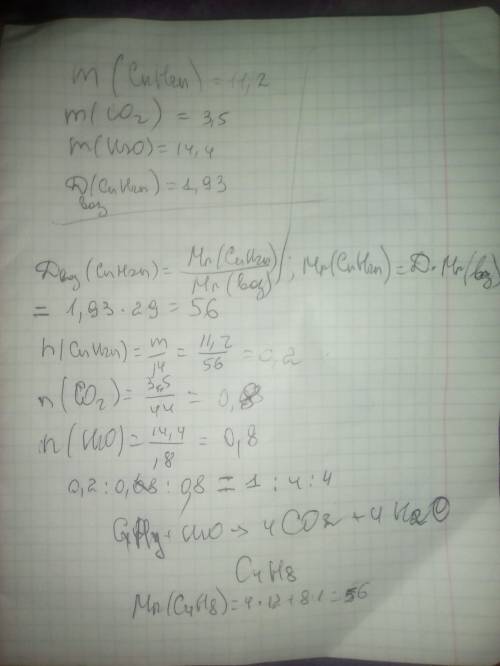 m (CnH2n) = 11,2
m(CO2) = 3,5
m(H2O) = 14,4
D воз (CnH2n) = 1,93
Dвоз (CnH2n) = Mr(CnH2n) / Mr(воз) ; Mr(CnH2n) = D · Mr(воз)
= 1,93 · 29 = 56
n(CnH2n) = m/M = 11,2/56 = 0,2
n(CO2) = 3,5/44 = 0,8
n(H2O) = 14,4/18 = 0,8
0,2 : 0,8 : 0,8 = 1 : 4 : 4
→ 4CO2 + 4H2O
C4H8
Mr(C4H8) = 4·12 + 8·1 = 56